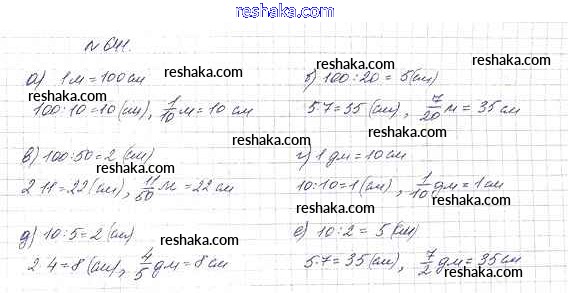 www.reshaka.com
№ 641.
а) 1 м = 100 см
reshaka.com
100:10=10 (см), 1/10 м = 10 см
reshaka.com
б) 100:20 = 5 (см)
reshaka.com
5·7=35 (см), 7/20 м = 35 см
reshaka.com
в) 100:50=2 (см)
reshaka.com
2·11=22 (см), 11/50 м = 22 см
reshaka.com
г) 1 дм = 10 см
reshaka.com
10:10=1 (см), 1/10 дм = 1 см
reshaka.com
д) 10:5=2 (см)
reshaka.com
2·4=8 (см), 4/5 дм = 8 см
reshaka.com
е) 10:2 = 5 (см)
reshaka.com
5·7=35 (см), 7/2 дм = 35 см
reshaka.com